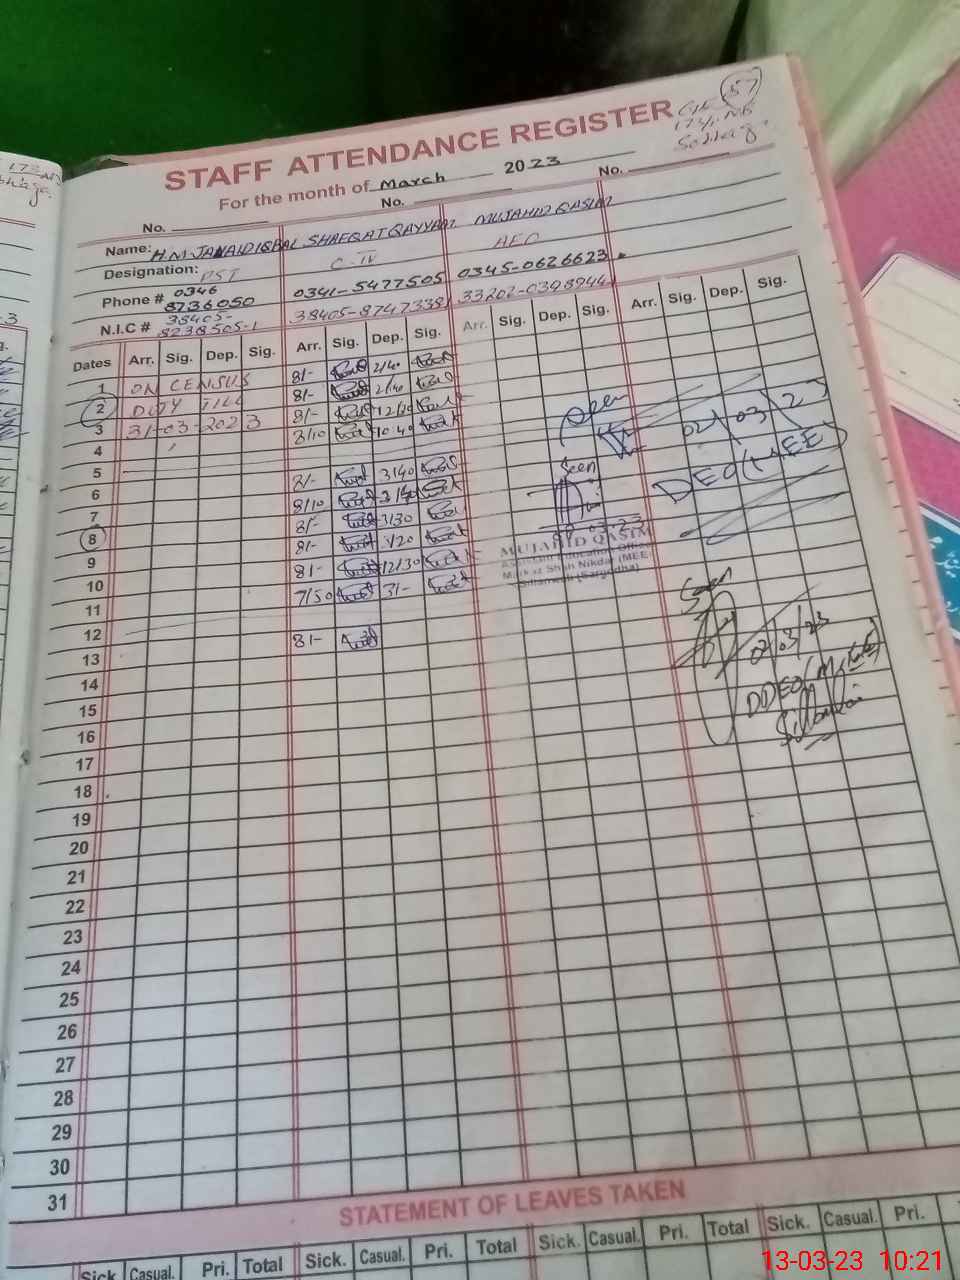 STAFF ATTENDANCE REGISTER
57
For the month of March 2023
No. No. No.
Name: H.M JANAID IQBAL SHAFQAT QAYYAM MUJAHID QASIM
Designation: PST C-IV AEO
Phone # 0346 8736050 0341-5477505 0345-0626623
N.I.C # 38405-8238505-1 38405-8747338 33202-0398944
Dates Arr. Sig. Dep. Sig. Arr. Sig. Dep. Sig. Arr. Sig. Dep. Sig. Arr. Sig. Dep. Sig.
1 ON CENSUS 8/- 2/40
2 DUTY TILL 8/- 2/40
3 31-03-2023 8/- 12/20
4 8/10 10:40
5
6 8/- 3/40
7 8/10 3/40
8 8/- 3/30
9 8/- 3/20
10 8/- 12/30
11 7/50 3/-
12
13 8/-
14
15
16
17
18
19
20
21
22
23
24
25
26
27
28
29
30
31
Seen
02/03/23
DEO (M-EE)
Seen
09-03-23
MUJAHID QASIM
Assistant Education Officer
Markaz Shah Nikdar (MEE-
Sillanwali (Sargodha)
Seen
02/03/23
DDEO (M-EE)
Sillanwali
STATEMENT OF LEAVES TAKEN
Sick. Casual. Pri. Total Sick. Casual. Pri. Total Sick. Casual. Pri. Total Sick. Casual. Pri.
13-03-23 10:21